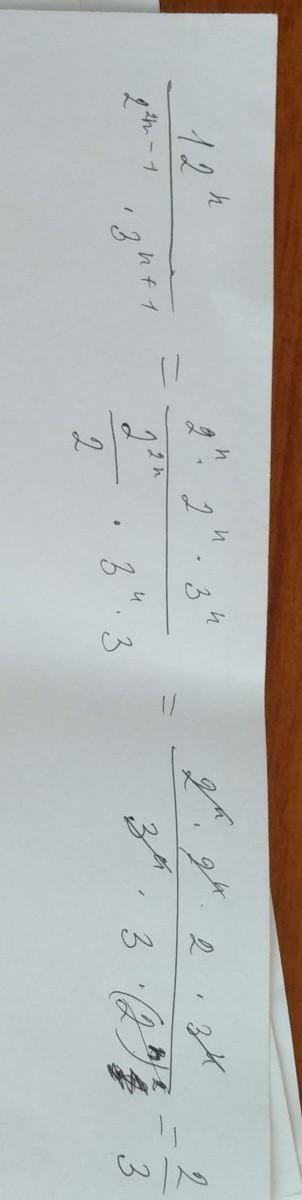 12ⁿ / (2²ⁿ⁻¹ · 3ⁿ⁺¹) = (2ⁿ · 2ⁿ · 3ⁿ) / ((2²ⁿ / 2) · 3ⁿ · 3) = (2ⁿ · 2ⁿ · 2 · 3ⁿ) / (3ⁿ · 3 · (2ⁿ)²) = 2 / 3